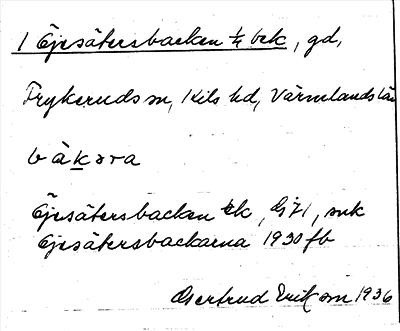 1 Öjesätersbacken ¼ bek, gd,
Frykeruds sn, Kils hd, Värmlands län
bàkara
Öjesätersbacken ek, Gj71, snk
Öjesätersbackarna 1930 fb
Gertrud Erikson 1936